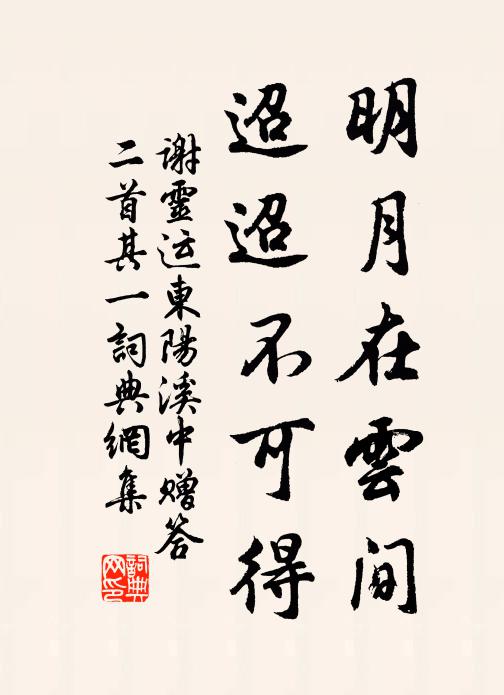 明月在雲間
迢迢不可得
谢靈运東陽溪中赠答
二首其一詞典網集
詞典
网印